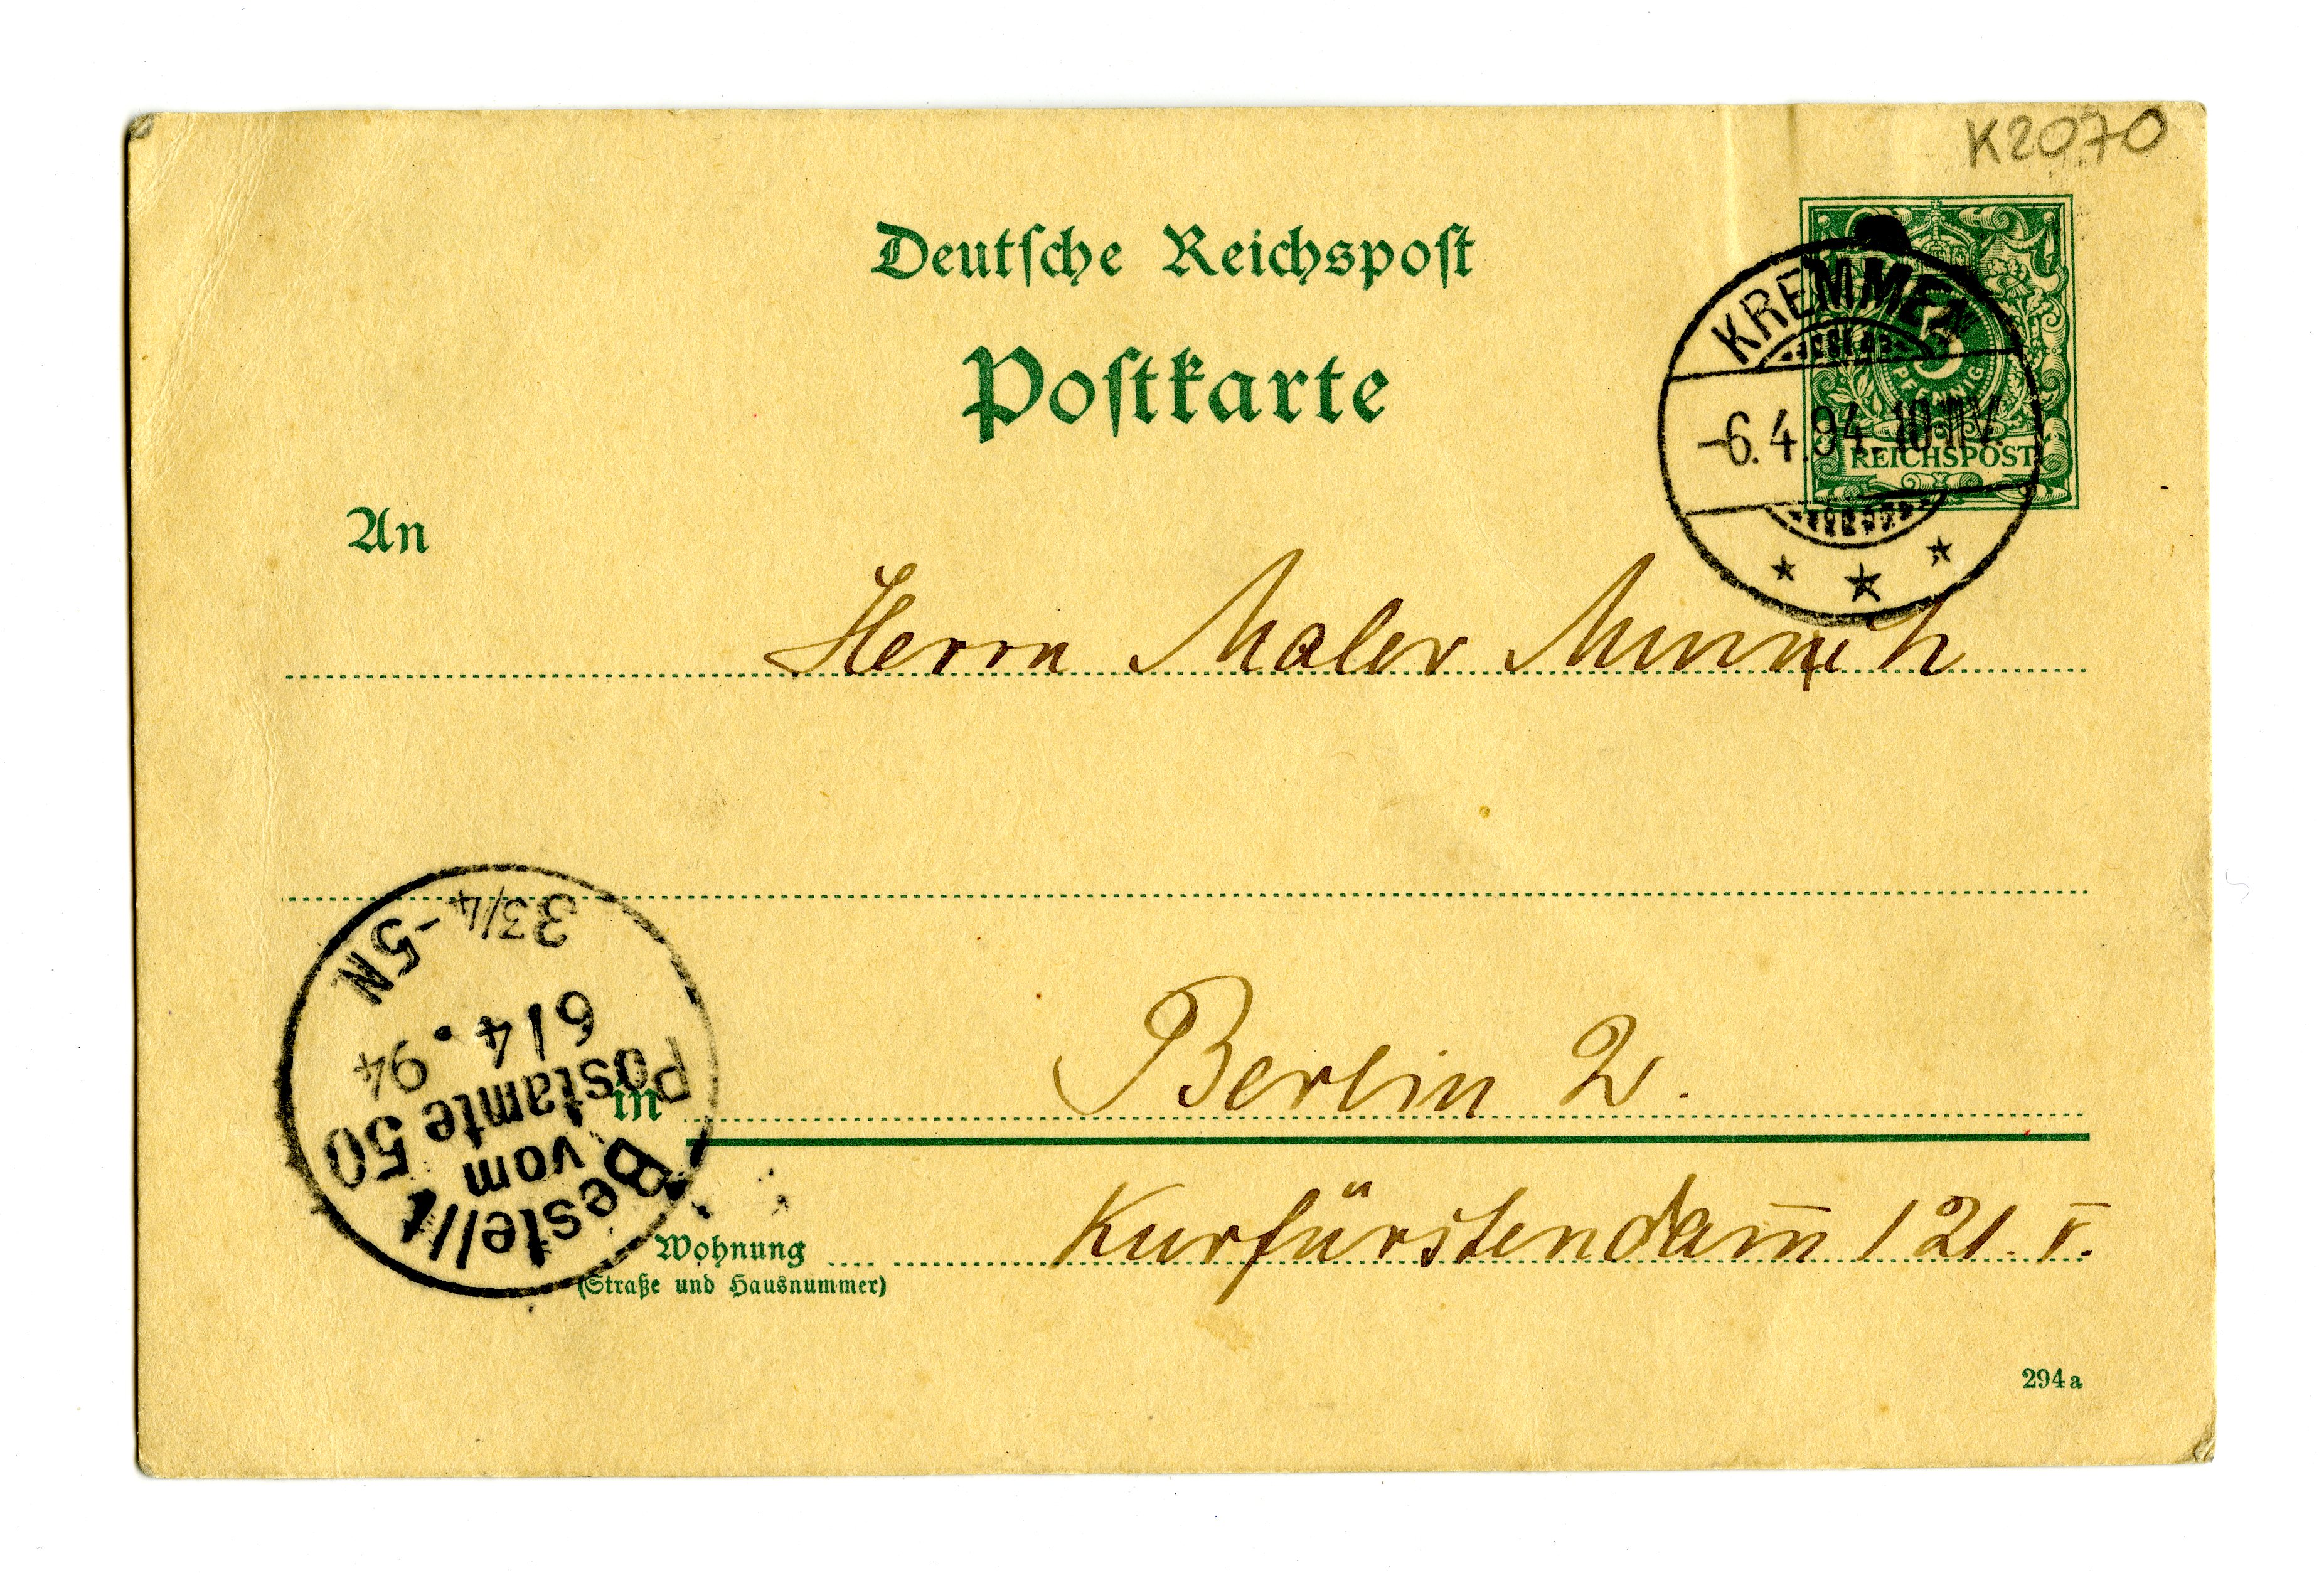 K2070
Deutſche Reichspoſt
Poſtkarte
5
PFENNIG
REICHSPOST
KREMMEN
-6.4.94.10-11V.
An
Herrn Maler
Berlin W.
in
Kurfürstendam̅ 121. I.
Wohnung
(Straße und Hausnummer)
Bestellt
vom
Postamte 50
6/4.94
33/4-5N
294a